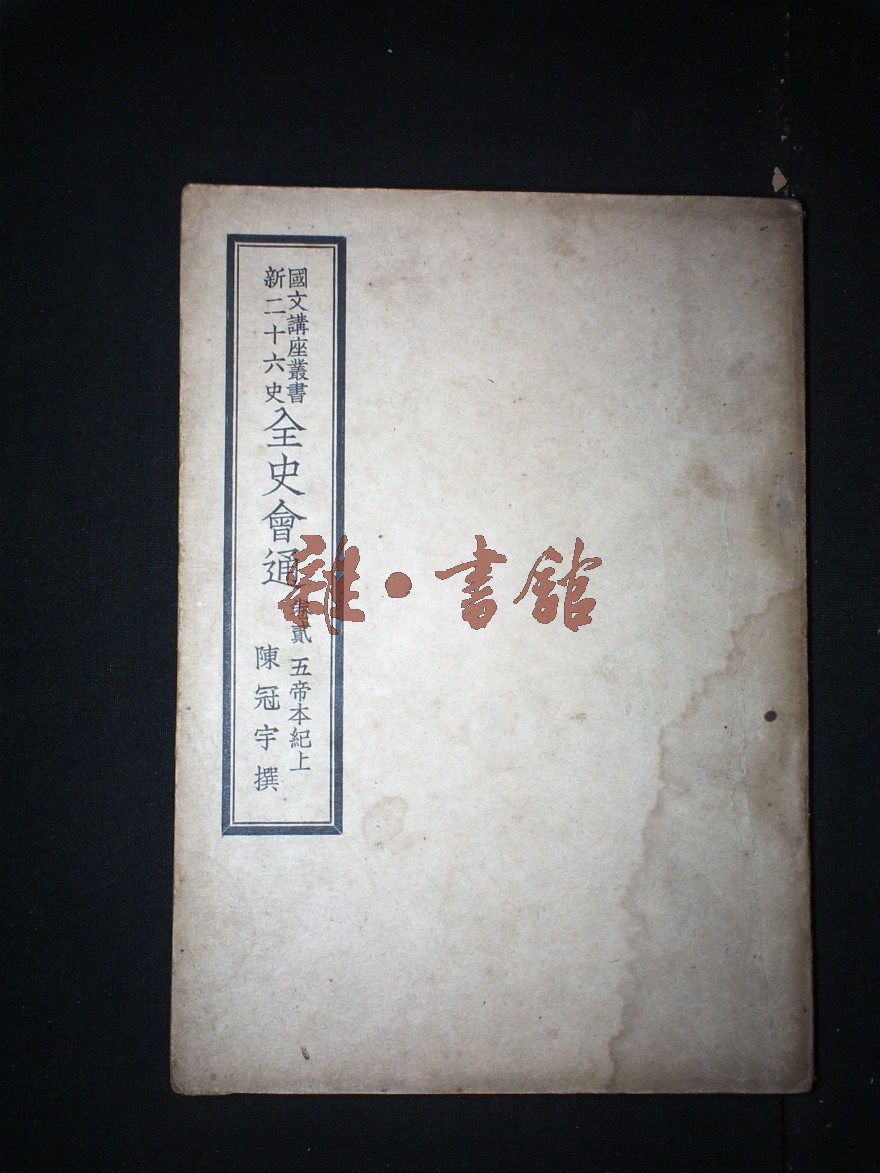 國文講座叢書
新二十六史
全史會通
卷貳 五帝本紀上
陳冠宇撰
雜·書館